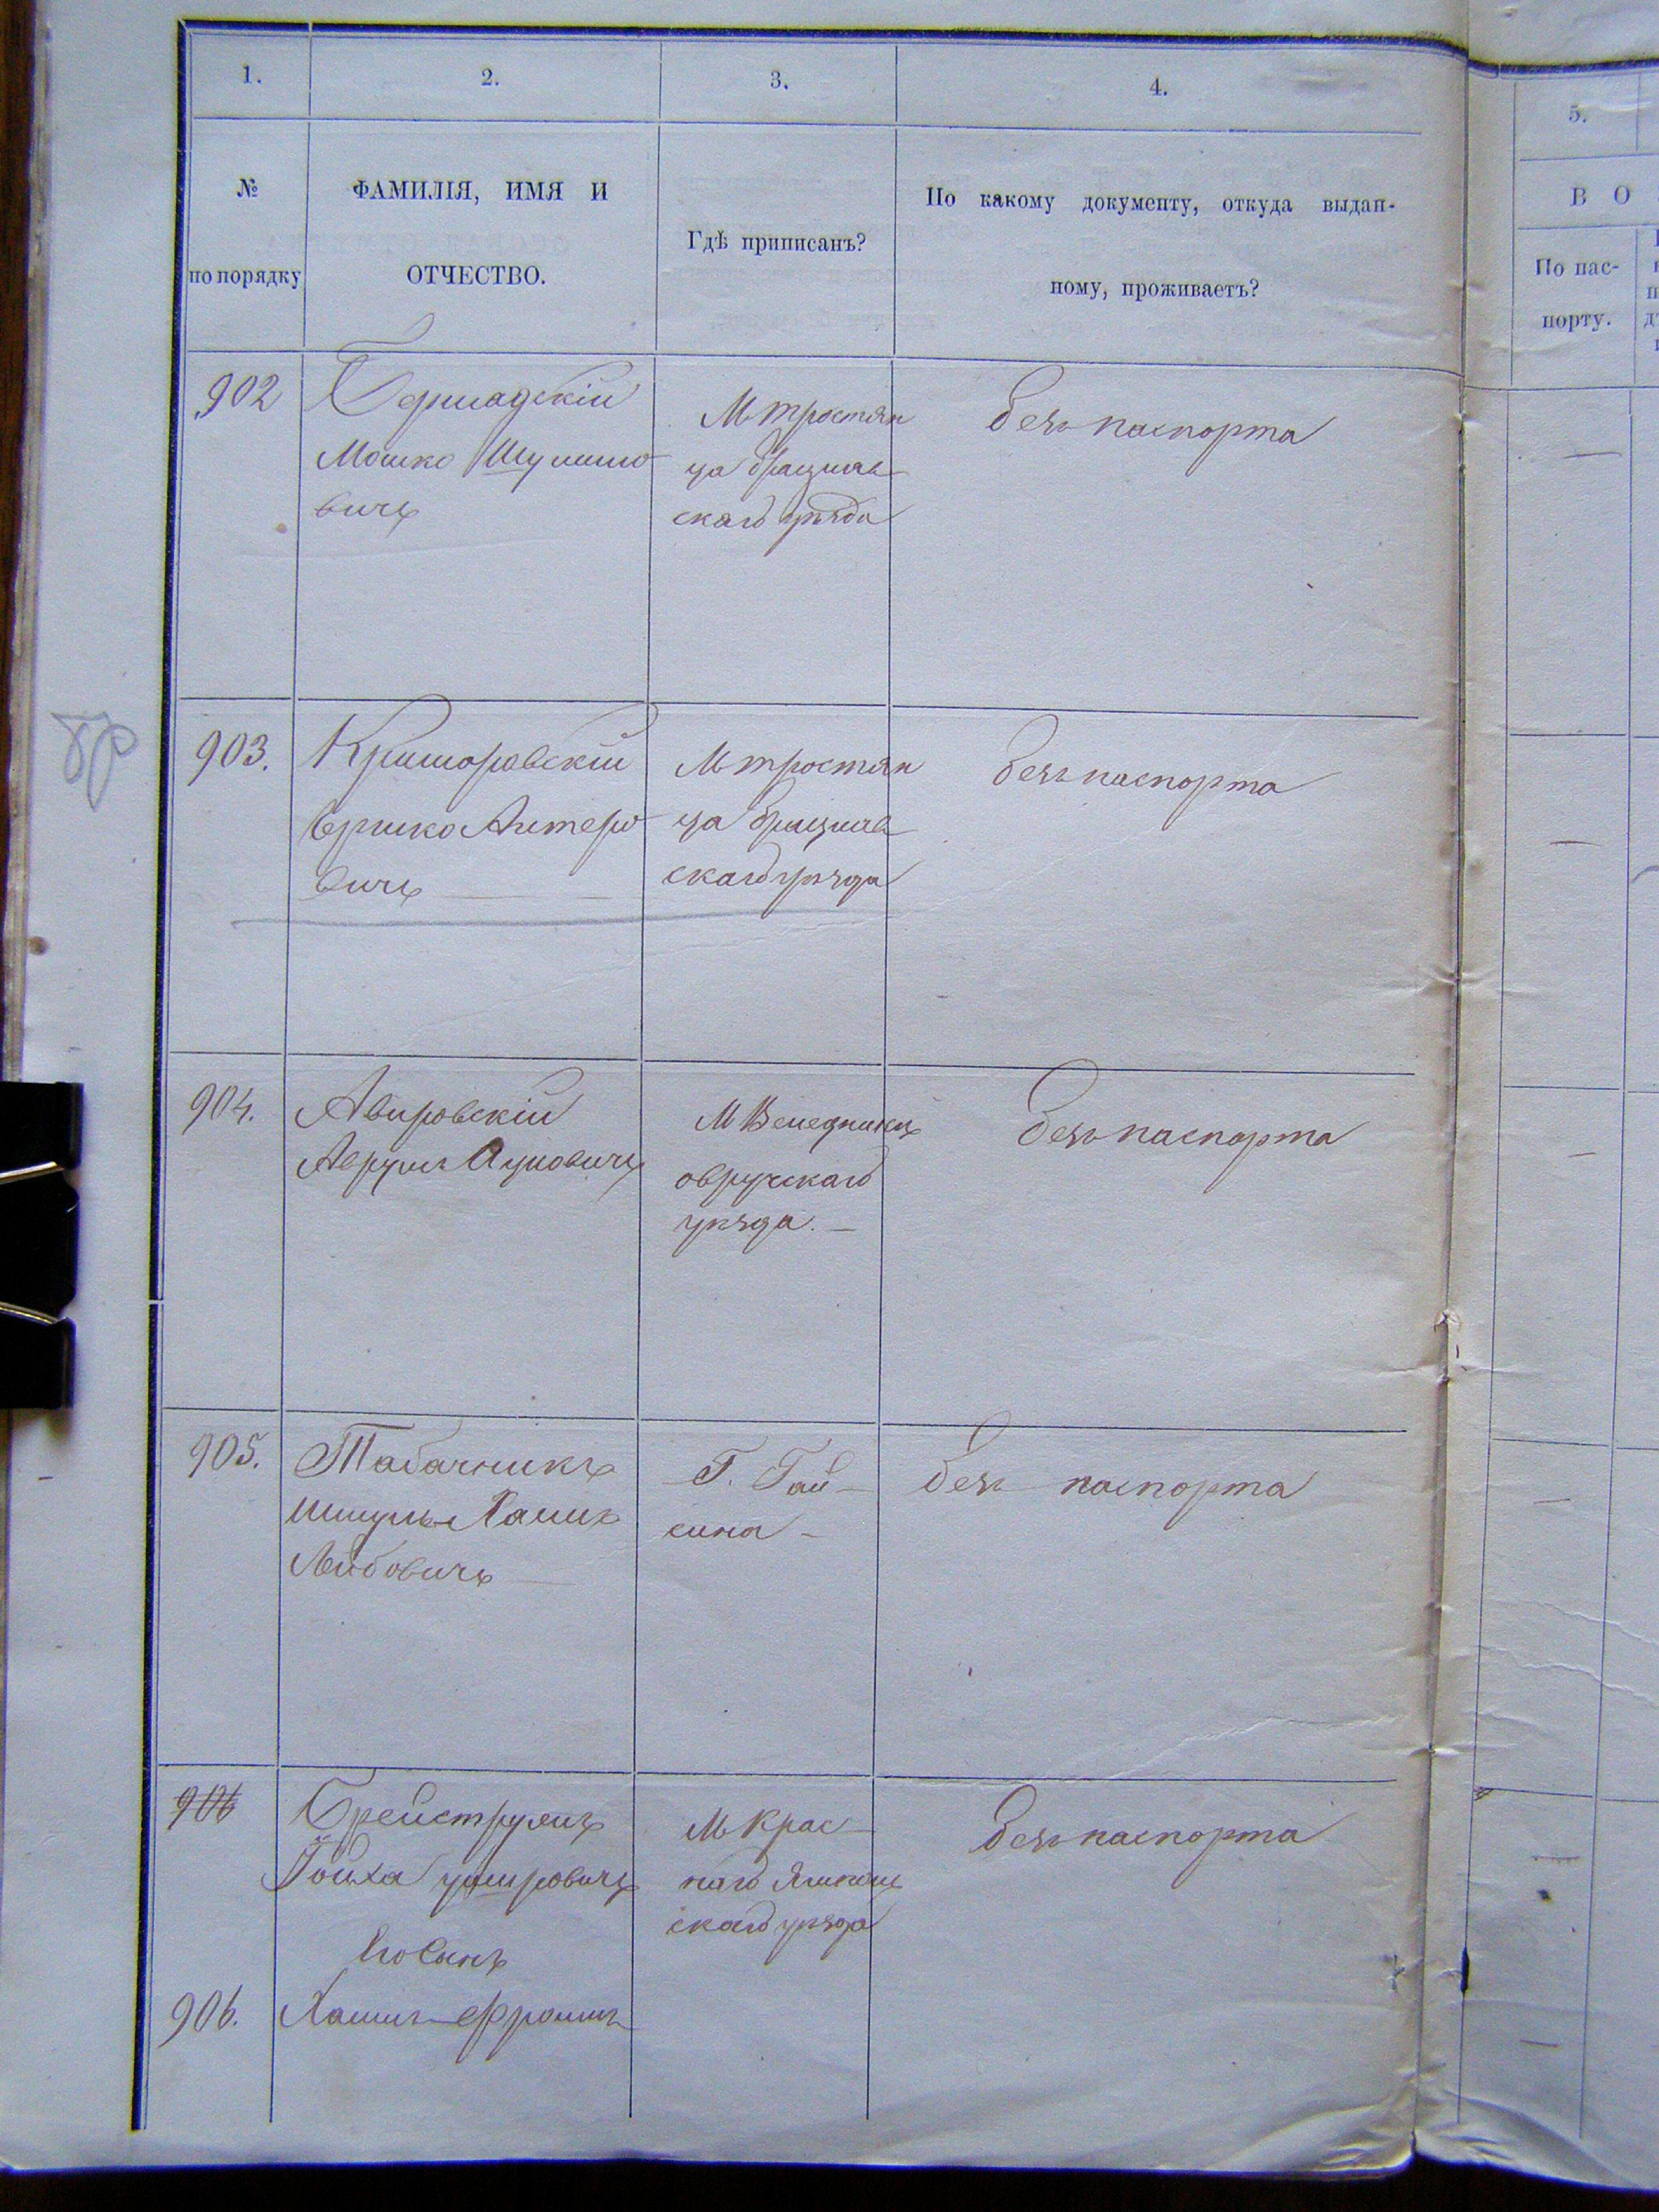 1.
2.
3.
4.
5.
№
по порядку
ФАМИЛІЯ, ИМЯ И
ОТЧЕСТВО.
Гдѣ приписанъ?
По какому документу, откуда выдан-
ному, проживаетъ?
В О
По пас-
порту.
902
Бершадскій
Мошко Шулимо
вичъ
М Тростян
ца Брацлав
скаго уѣзда
безъ паспорта
903.
Криморавскій
Ершко
вичъ
М Тростян
ца Брацлав
скаго уѣзда
безъ паспорта
904.
Авировскій
Аврумъ
М
овручскаго
уѣзда.
безъ паспорта
905.
Табачникъ
Шмуль Хаимъ
Лейбовичъ
Г. Гай
сина
безъ паспорта
906
Ройха
М Крас
наго Ямполь
скаго уѣзда
безъ паспорта
906.
Хаимъ Фроимъ